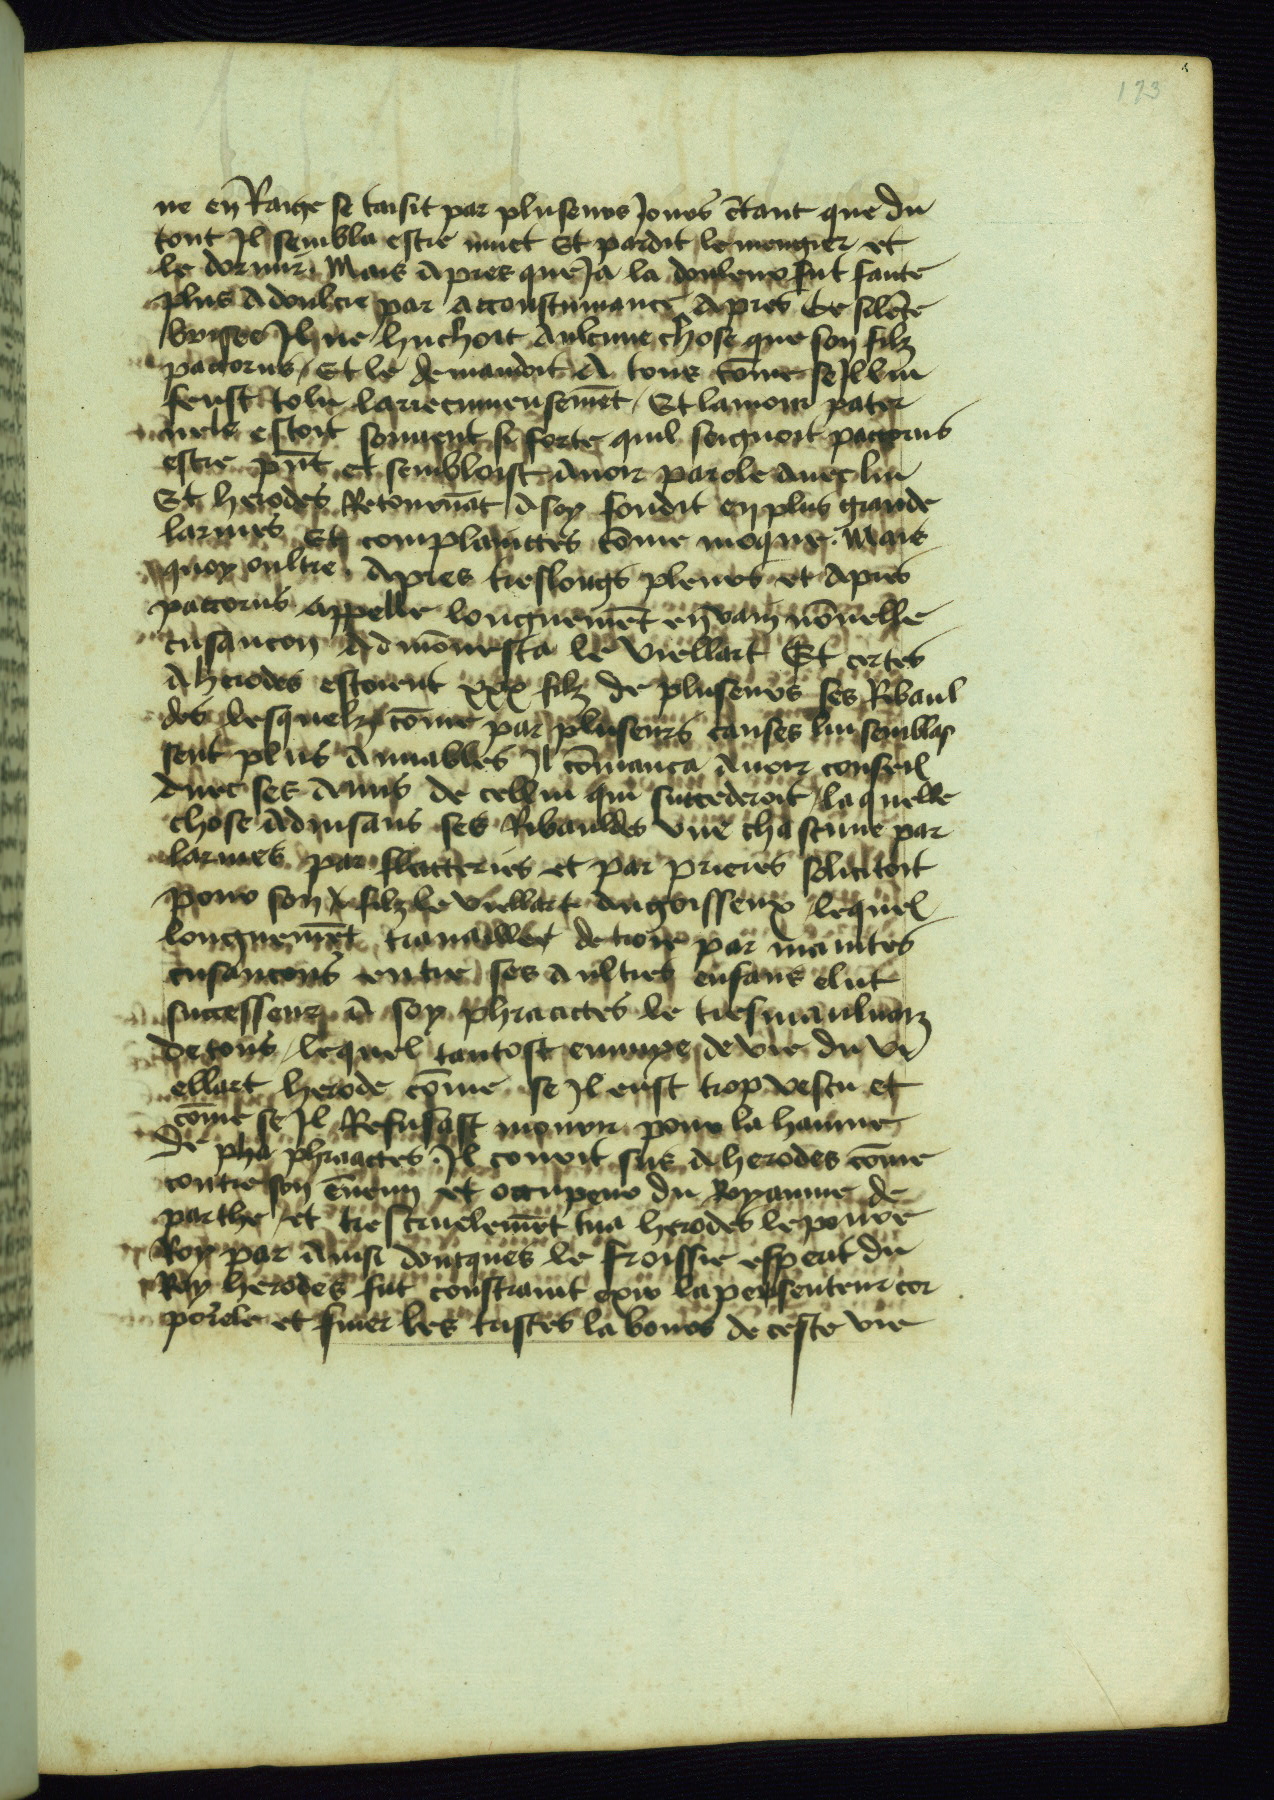 123
ne en Raige se taisit par pluseurs Jours Et tant que du
tout Jl sembla estre muet Et pardit le mengier et
le dormir. Mais Apres que Ja la douleur fut faute
plus Adoulcie par Accoustumance Apres Ce silẽce
brisee Jl ne huchoit Aulcune chose que son filz
pacorus / Et le demandoit A tous cõme se Jl lui
feust tolu larrecineusemẽt / Et lamour pater
nele estoit souuent si forte quil soignoit pacorus
estre pñt et sembloist Auoir parole Auec lui
Et herodes Retournãt A soy fondit en plus grande
larmes Et complainttes cõme moque. Mais
quoy oultre. Apres treslongs pleurs et Apres
pacorus Appelle longuemẽt en vain nõuelle
cusancon Admõnesta le viellart Et certes
A herodes estoient xxx filz de pluseurs ses Ribaul
des desquelz cõme par pluseurs causes lui semblas
sent plus Amiables Jl cõmanca Auoir conseil
Auec ses Amis de cellui qui succederoit / laquelle
chose Aduisans ses Ribauldes vne chascune par
larmes par flatteries et par prieres solicitoit
pour son filz le viellart Angoisseux / lequel
longuemẽt trauaillet de croire par maintes
cusancons entre ses Aultres enfans elut
successeur A soy phraactes le tresmauluaiz
de tous / lequel tantost ennuye de vie du vi
ellart herode cõme se Jl eust trop vescu et
cõme se Jl Refusast mourir pour la hainne
De pha phraactes. Jl courit sus A herodes cõme
contre son ẽnemi et occupeur du Royaume de
parthe / et trescruelemẽt tua herodes le poure
Roy par Ainsi doncques le froissie esperit du
Roy herodes fut constraint exir la pesenteur cor
porele et finer les tristes labours de ceste vie